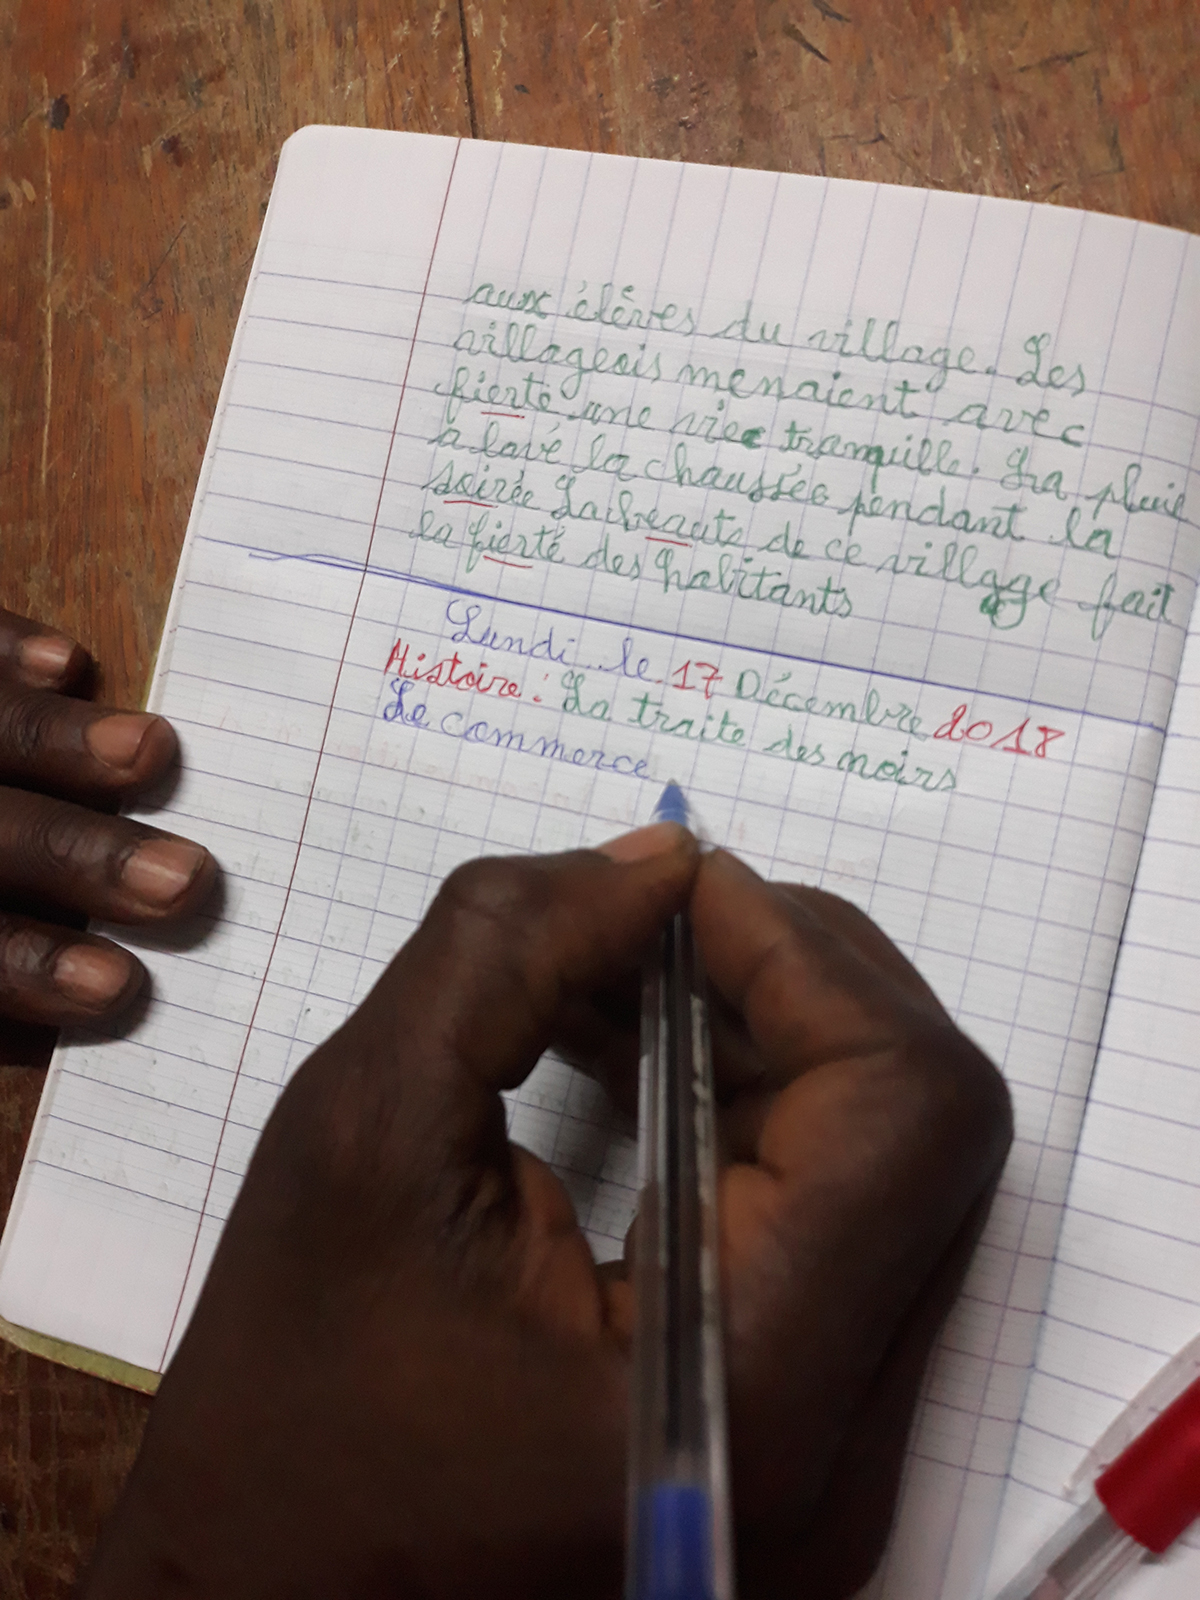 aux élèves du village. Les
villageois menaient avec
fierté une vie tranquille. La pluie
a lavé la chaussée pendant la
soirée La beauté de ce village fait
la fierté des habitants
Lundi le 17 Décembre 2018
Histoire : La traite des noirs
Le commerce